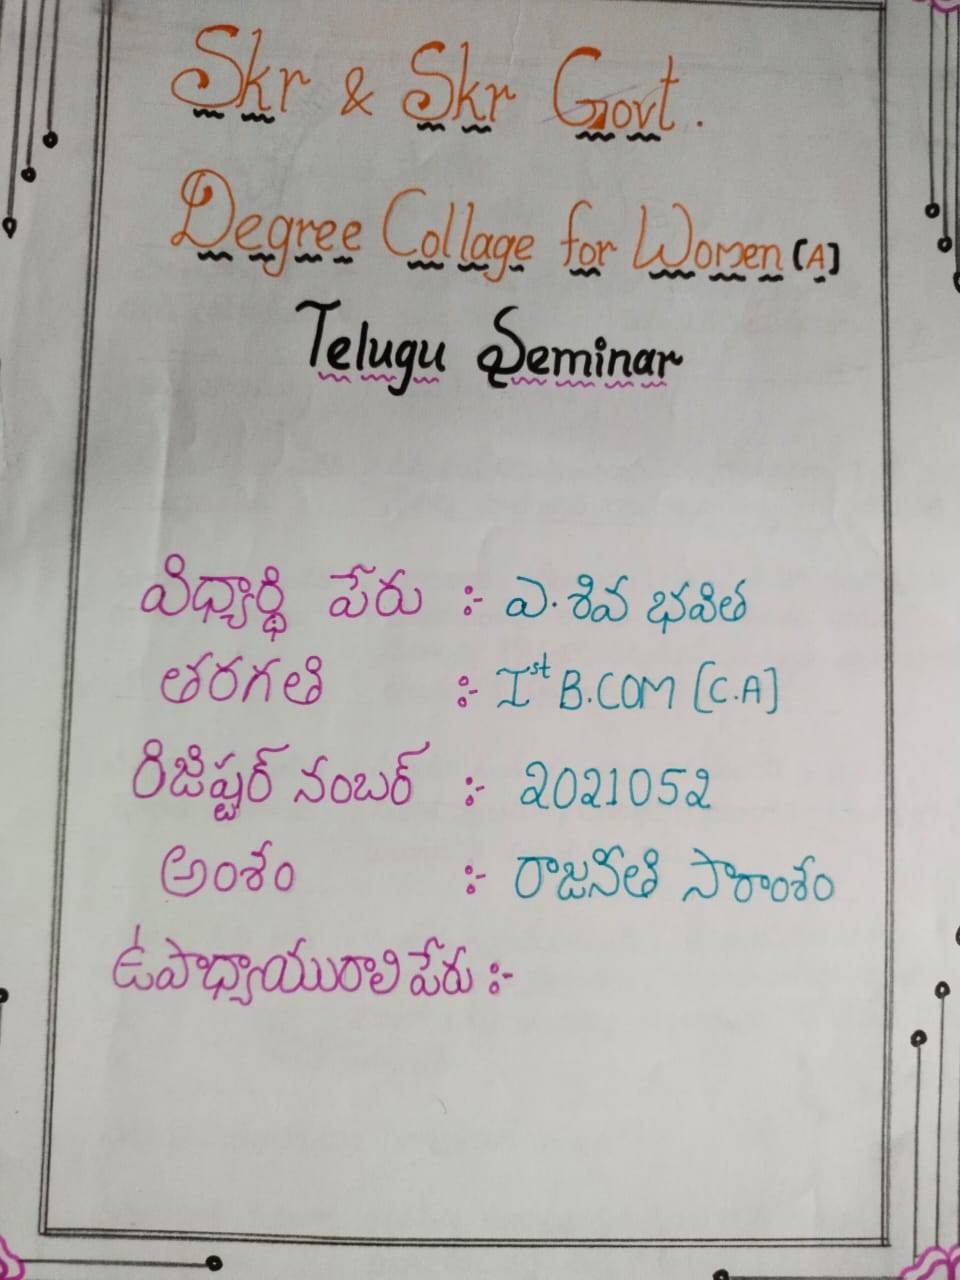 Skr & Skr Govt.
Degree Collage for Women [A]
Telugu Seminar
విధ్యార్థి పేరు :- ఎ. శివ భవిత
తరగతి :- Ist B.COM [C.A]
రిజిష్టర్ నంబర్ :- 2021052
అంశం :- రాజనీతి సారాంశం
ఉపాధ్యాయురాలి పేరు :-